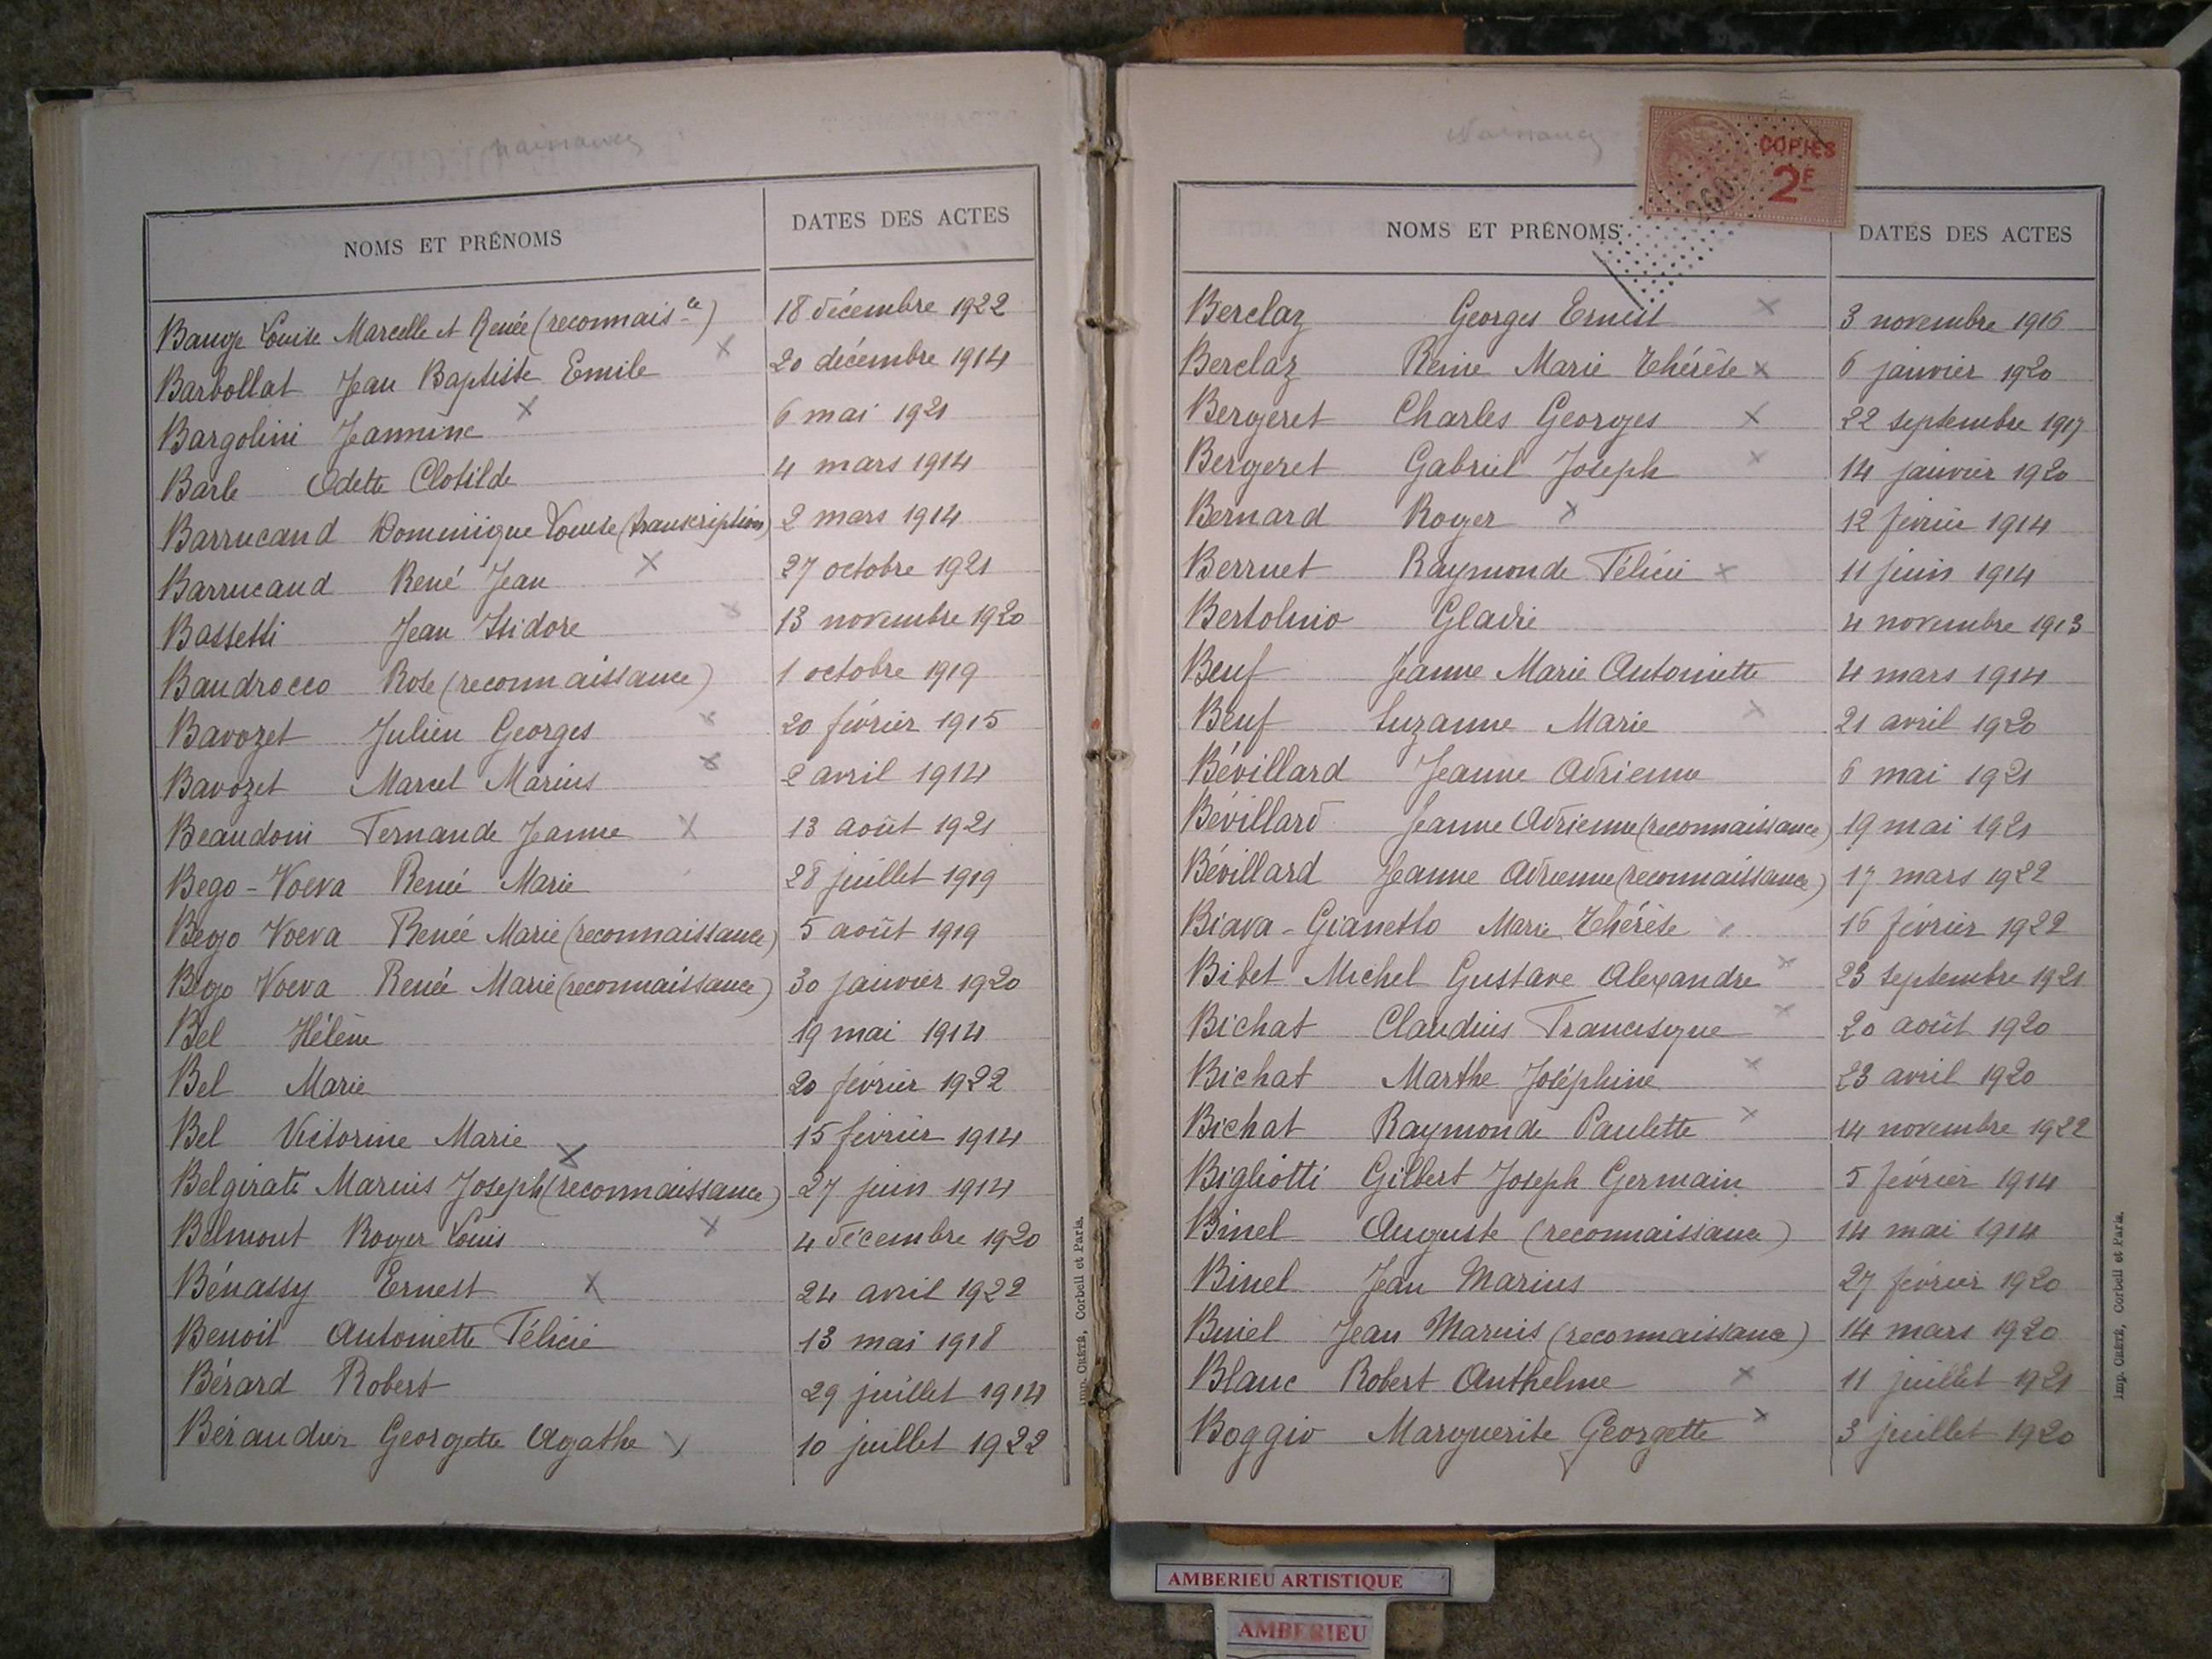 naissances
NOMS ET PRÉNOMS DATES DES ACTES
Bauge Louise Marcelle et Renée (reconnais.ce) 18 décembre 1922
Barbollat Jean Baptiste Emile x 20 décembre 1914
Bargolini Jeannine x 6 mai 1921
Barle Odette Clotilde 4 mars 1914
Barrucand Dominique Louise (transcription) 2 mars 1914
Barrucand René Jean x 27 octobre 1921
Bassetti Jean Isidore x 13 novembre 1920
Baudrocco Rose (reconnaissance) 1 octobre 1919
Bavozet Julien Georges x 20 février 1915
Bavozet Marcel Marius x 2 avril 1914
Beaudoin Fernande Jeanne x 13 août 1921
Bego-Voeva Renée Marie 28 juillet 1919
Bego Voeva Renée Marie (reconnaissance) 5 août 1919
Bego Voeva Renée Marie (reconnaissance) 30 janvier 1920
Bel Hélène 19 mai 1914
Bel Marie 20 février 1922
Bel Victorine Marie x 15 février 1914
Belgirati Marius Joseph (reconnaissance) 27 juin 1914
Belmont Roger Louis x 4 décembre 1920
Bénassy Ernest x 24 avril 1922
Benoit Antoinette Félicie 13 mai 1918
Bérard Robert 29 juillet 1914
Béraudier Georgette Agathe x 10 juillet 1922
Imp. CRÉTÉ, Corbeil et Paris.
Naissances
COPIES
2F
NOMS ET PRÉNOMS DATES DES ACTES
Berclaz Georges Ernest x 3 novembre 1916
Berclaz Reine Marie Thérèse x 6 janvier 1920
Bergeret Charles Georges x 22 septembre 1917
Bergeret Gabriel Joseph x 14 janvier 1920
Bernard Roger x 12 février 1914
Berruet Raymonde Félicie x 11 juin 1914
Bertolino Gladie 4 novembre 1913
Beuf Jeanne Marie Antoinette 4 mars 1914
Beuf Suzanne Marie x 21 avril 1920
Bévillard Jeanne Adrienne 6 mai 1921
Bévillard Jeanne Adrienne (reconnaissance) 19 mai 1921
Bévillard Jeanne Adrienne (reconnaissance) 17 mars 1922
Biava-Gianetto Marie Thérèse x 16 février 1922
Bibet Michel Gustave Alexandre x 23 septembre 1921
Bichat Claudius Francisque x 20 août 1920
Bichat Marthe Joséphine x 23 avril 1920
Bichat Raymonde Paulette x 14 novembre 1922
Bigliotti Gilbert Joseph Germain 5 février 1914
Binel Auguste (reconnaissance) 14 mai 1914
Binel Jean Marius 27 février 1920
Binel Jean Marius (reconnaissance) 14 mars 1920
Blanc Robert Anthelme x 11 juillet 1921
Boggio Marguerite Georgette x 3 juillet 1920
Imp. CRÉTÉ, Corbeil et Paris.
AMBERIEU ARTISTIQUE
AMBERIEU